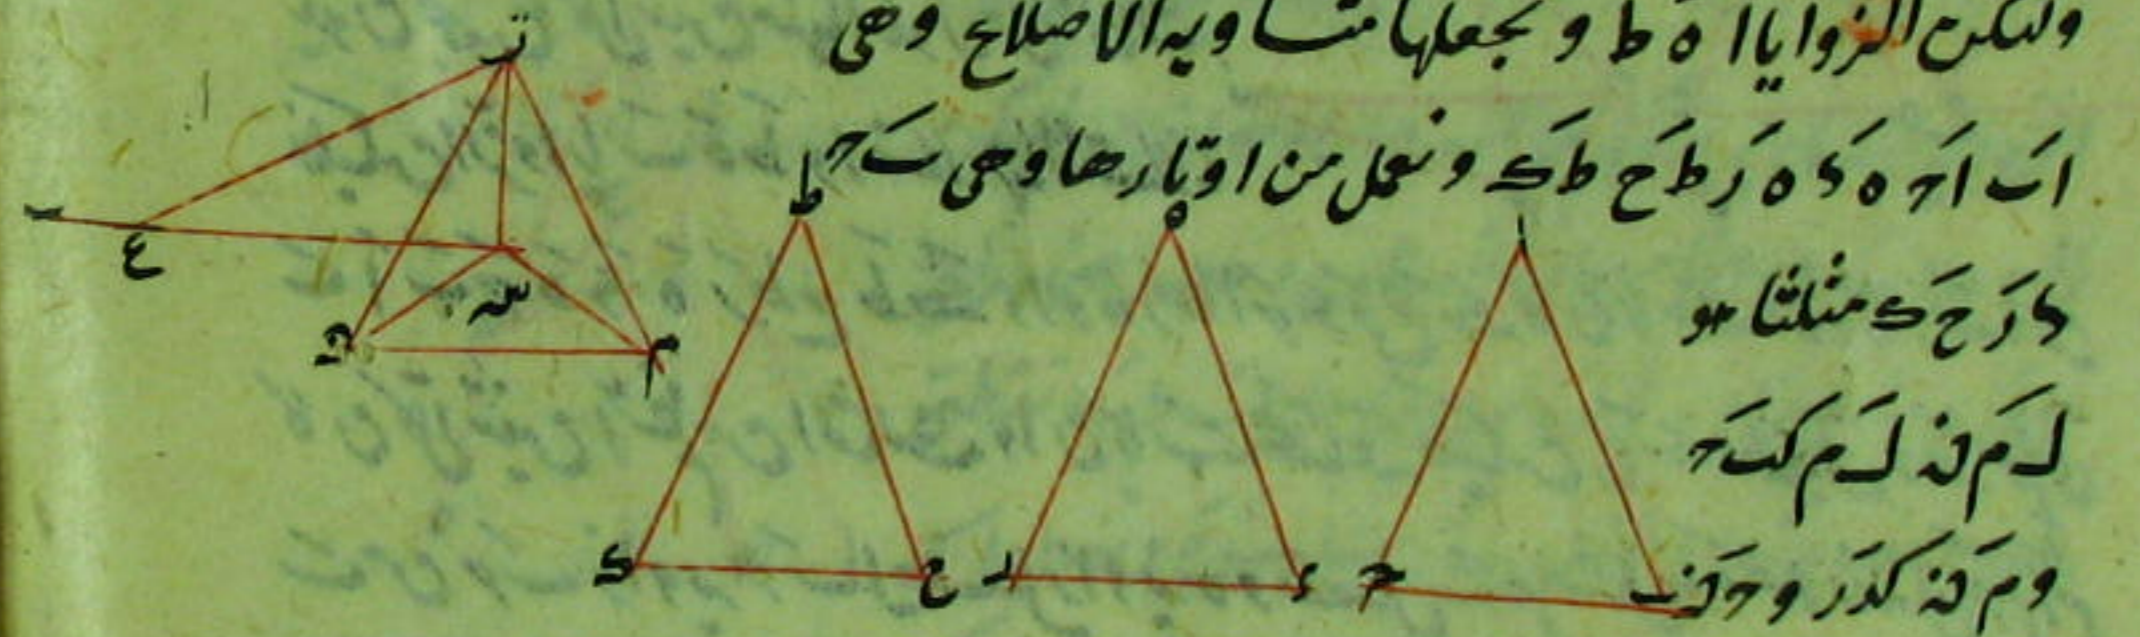 ولتكن الزوايا ا ه ط و نجعلها متساوية الاضلاع وهى
اب اح ه د ه ر ط ح ط ك و نعمل من اوتارها وهى ب ح
د ر ح ك مثلثا هو
ل م ن ل م كب ح
و م ن كدر و
ب
ع
س
ن
م
ط
ك
ح
ه
ر
د
ا
ح
ب